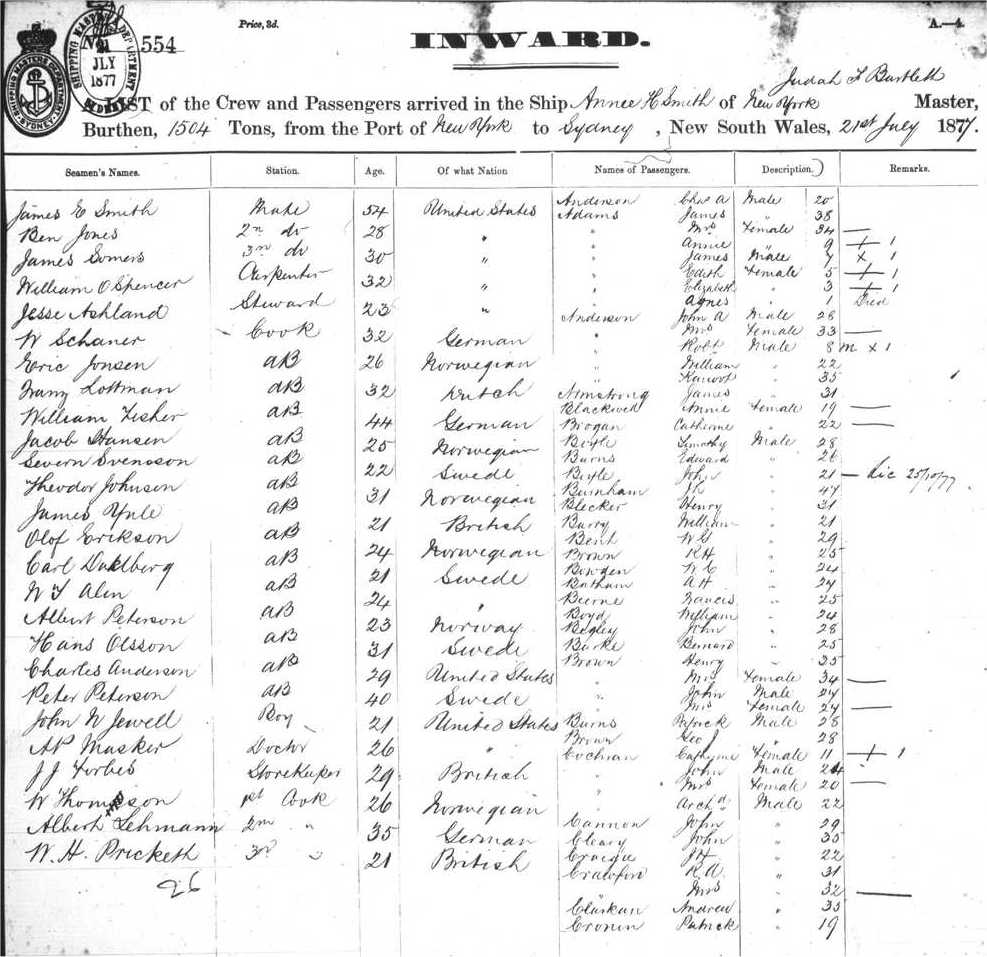 Price, 3d.
A.—4.
No. 554
SHIPPING MASTERS DEPARTMENT
21
JLY
1877
SYDNEY
SHIPPING MASTERS DEPARTMENT
SYDNEY
INWARD.
Judah F Bartlett
LIST of the Crew and Passengers arrived in the Ship Annie H Smith of New York Master,
Burthen, 1504 Tons, from the Port of New York to Sydney, New South Wales, 21st July 1877.
Seamen's Names. Station. Age. Of what Nation Names of Passengers. Description. Remarks.
James E Smith Mate 54 United States
Ben Jones 2nd do 28 "
James Somers 3rd do 30 "
William O Spencer Carpenter 32 "
Jesse Ashland Steward 23 "
W Schaner Cook 32 German
Eric Jonsen AB 26 Norwegian
Franz Lottman AB 32 Dutch
William Fisher AB 44 German
Jacob Hansen AB 25 Norwegian
Severn Svensson AB 22 Swede
Theodor Johnson AB 31 Norwegian
James Yule AB 21 British
Olof Erikson AB 24 Norwegian
Carl Dahlberg AB 21 Swede
W F Alen AB 24 "
Albert Peterson AB 23 Norway
Hans Olsson AB 31 Swede
Charles Anderson AB 29 United States
Peter Peterson AB 40 Swede
John W Jewell Boy 21 United States
AP Masker Doctor 26 "
JJ Forbes Storekeeper 29 British
W Thomson 1st Cook 26 Norwegian
Albert Lehmann 2nd " 35 German
W. H. Pricketh 3rd " 21 British
26
Anderson Chas A Male 20
Adams James " 38
" Mrs Female 34 —
" Annie " 9 + 1
" James Male 7 x 1
" Edith Female 5 + 1
" Elizabeth " 3 + 1
" Agnes " 1 Died
Anderson John A Male 28
" Mrs Female 33 —
" Robt Male 8 m x 1
" William " 22
" " 35
Armstrong James " 31
Blackwell Annie Female 19 —
Brogan Catherine " 22 —
Boyle Timothy Male 28
Burns Edward " 26
Boyle John " 21 — Dic 25/10/77
Burnham " 47
Blecker Henry " 31
Barry William " 21
Bent W G " 29
Brown R H " 25
Bowden W C " 24
Batham A H " 24
Beirne Francis " 25
Boyd William " 24
Begley John " 28
Burke Bernard " 25
Brown Henry " 35
" Mrs Female 34 —
" John Male 24
" Mrs Female 24 —
Burns Patrick Male 28
Brown Geo J " 28
Cochran Catherine Female 11 + 1
" John Male 24
" Mrs Female 20 —
" Archd Male 22
Cannon John " 29
Cleary John " 35
Craigie J H " 22
Crawford R A. " 31
" Mrs " 32 —
Andrew " 35
Cronin Patrick " 19